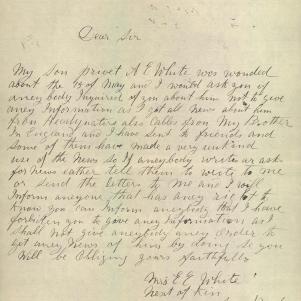 Dear Sir
My Son privet A E White was wonded
about the 15 of May and I would ask you if
aney body Inquired of you about him Not to give
aney Information as I got all News about him
from Headquaters also Cables from My Brother
In England and I have sent to friends and
Some of them have Made a very
use of the News So If aneybody write or ask
for News eather tell them to write to me
or send the letters to Me and I will
Inform anyone that has aney rigt to
Know you can Inform aneybody that I have
forbiden you to give aney Information as I
Shall not give aneybody aney Order to
get aney News of him by doing so you
Will be Obliging yours faithfully
Mrs E E White
Next of Kin